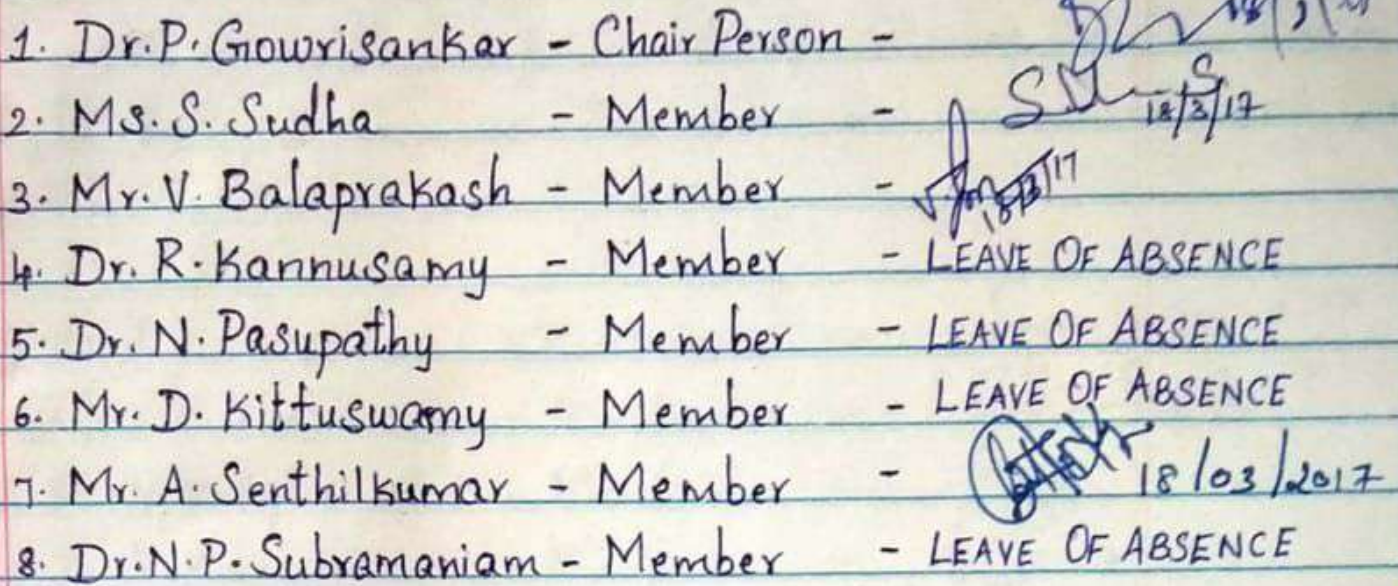 1. Dr. P. Gowrisankar - Chair Person -
2. Ms. S. Sudha - Member - 18/3/17
3. Mr. V. Balaprakash - Member -
4. Dr. R. Kannusamy - Member - LEAVE OF ABSENCE
5. Dr. N. Pasupathy - Member - LEAVE OF ABSENCE
6. Mr. D. Kittuswamy - Member - LEAVE OF ABSENCE
7. Mr. A. Senthilkumar - Member - 18/03/2017
8. Dr. N. P. Subramaniam - Member - LEAVE OF ABSENCE